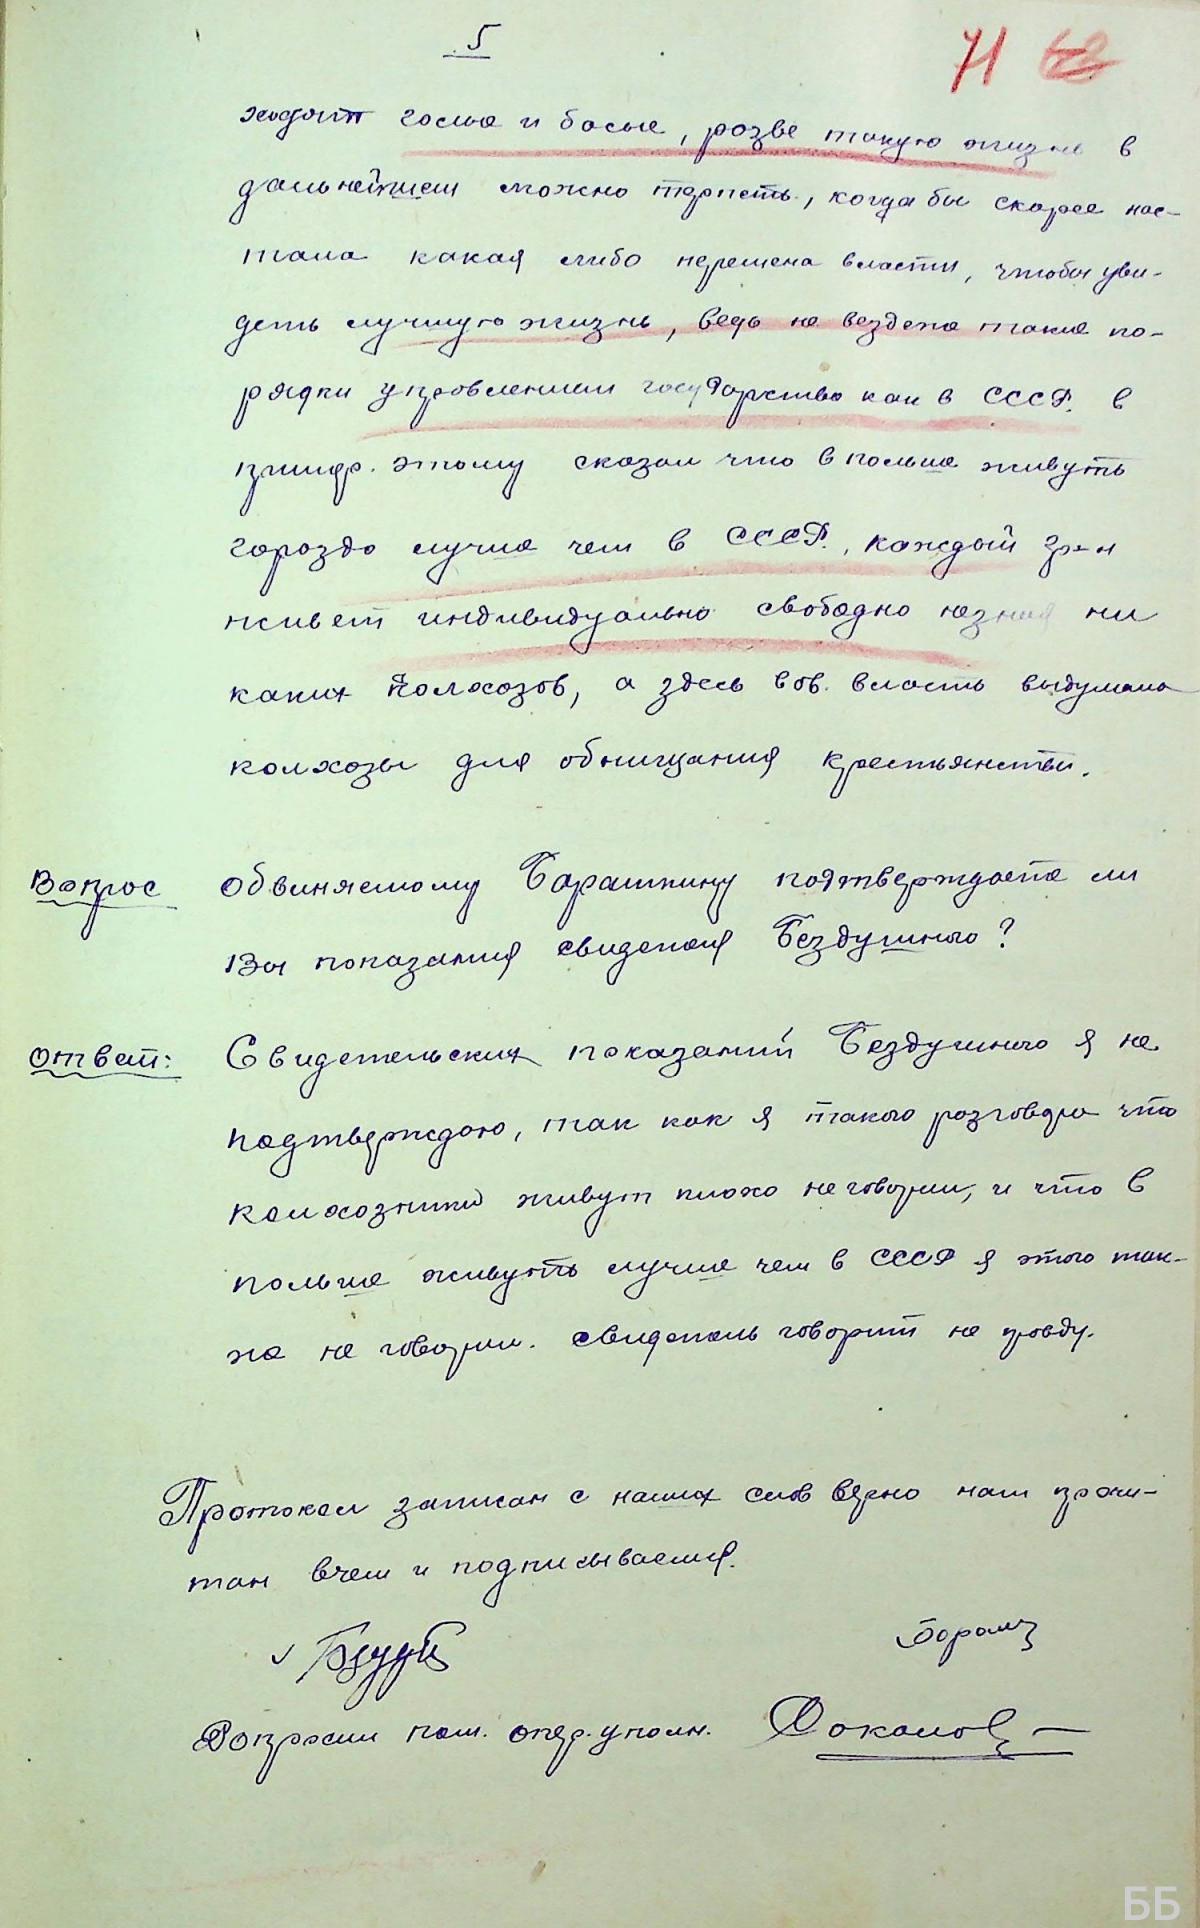 5
71 62
ходят голые и босые, разве такую жизнь в
дальнейшем можно терпеть, когда бы скорее нас-
тала какая либо перемена власти, чтобы уви-
деть лучшую жизнь, ведь не везде же такие по-
рядки управлением государства как в СССР. в
пример. этому сказал что в польше живуть
гораздо лучше чем в СССР., каждый гр-н
живет индивидуально свободно незная ни
каких колхозов, а здесь сов. власть выдумала
колхозы для обнищания крестьянства.
Вопрос обвиняемому Барашкину подтверждаете ли
Вы показания свидетеля Бездушного?
Ответ: Свидетельских показаний Бездушного я не
подтверждаю, так как я такого разговора что
колхозники живут плохо не говорил, и что в
польше живуть лучше чем в СССР я этого так-
же не говорил. свидетель говорит не правду.
Протокол записан с наших слов верно нам прочи-
тан в чем и подписываемся.
Допросил пом. опер. уполн.
ББ